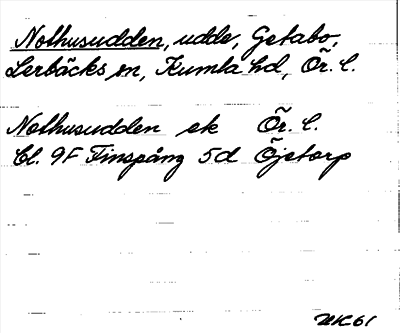 Nothusudden, udde, Getabo,
Lerbäcks sn, Kumla hd, Ör. l.
Nothusudden ek Ör. l.
Bl. 9F Finspång 5d Öjetorp